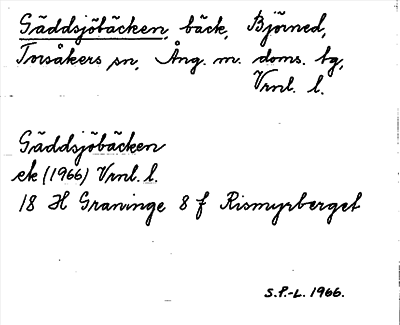 Gäddsjöbäcken, bäck, Björned,
Torsåkers sn, Ång. m. doms. bg,
Vrnl. l.
Gäddsjöbäcken
ek (1966) Vrnl. l.
18 H Graninge 8 f Rismyrberget
S.P.-L. 1966.